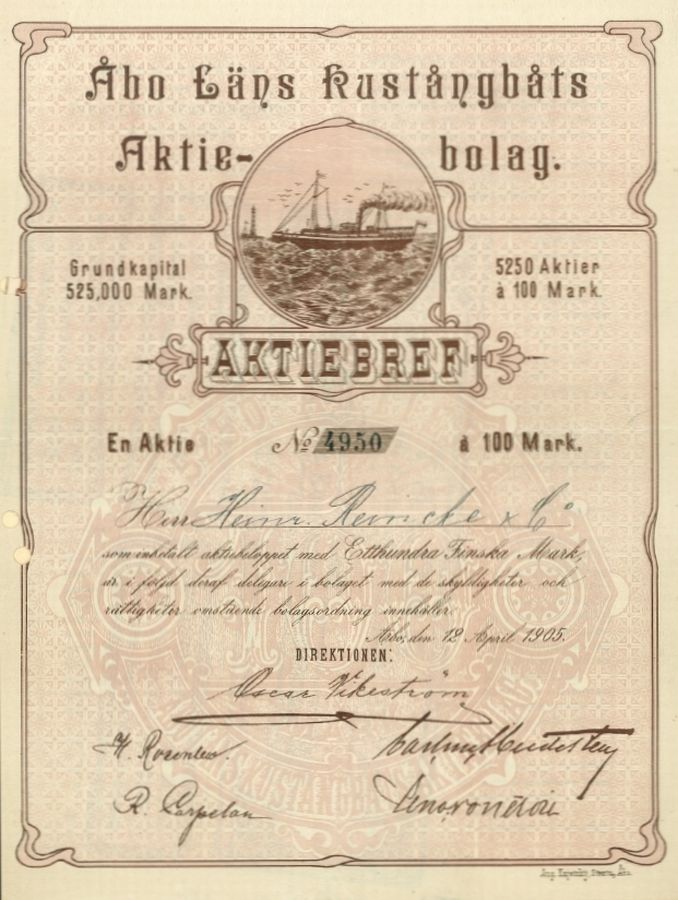 Åbo Läns Kustångbåts
Aktie- bolag.
Grundkapital
525,000 Mark.
5250 Aktier
à 100 Mark.
AKTIEBREF
En Aktie No 4950 à 100 Mark.
Herr Heinr. Reincke & Co
som inbetalt aktiebeloppet med Etthundra Finska Mark,
är i följd deraf delegare i bolaget med de skyldigheter och
rättigheter omstående bolagsordning innehåller.
Åbo, den 12 April 1905.
DIREKTIONEN:
Oscar Vikeström
H. Rosenlew.
R. Carpelan